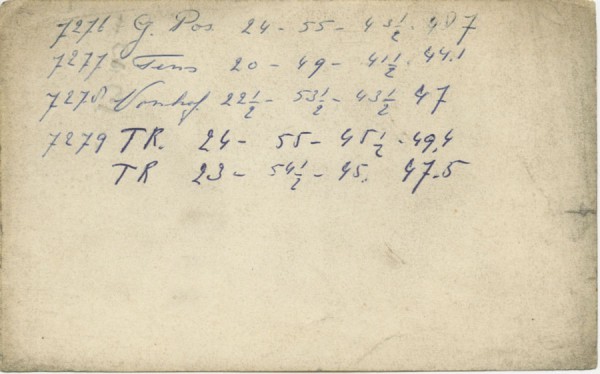 7276 G. Pos 24 - 55 - 43½ · 48 7
7277 Tens 20 - 49 - 41½ · 44.1
7278 Vomhof 22½ - 53½ - 43½ 47
7279 TR. 24 - 55 - 45½ · 49,4
TR 23 - 54½ - 45. 47.5